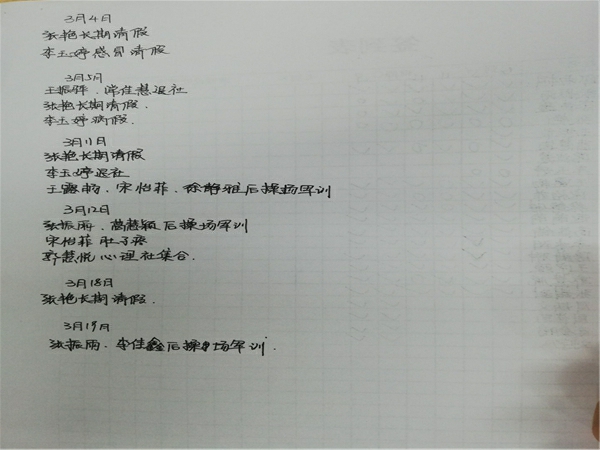 3月4日
张艳长期请假
李玉婷感冒请假
3月5日
王振 、常佳慧退社
张艳长期请假.
李玉婷病假.
3月11日
张艳长期请假
李玉婷退社
王露畅、宋怡菲、徐静雅后操场军训
3月12日
张振雨、葛慧颖后操场军训
宋怡菲肚子疼
郭慧悦心理社集合.
3月18日
张艳长期请假.
3月19日
张振雨、李佳鑫后操场军训.
签到表